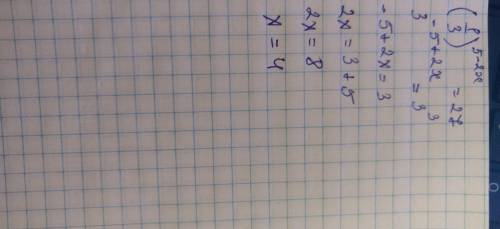 (1/3)^(5-2x) = 27
3^(-5+2x) = 3^3
-5+2x = 3
2x = 3+5
2x = 8
x = 4